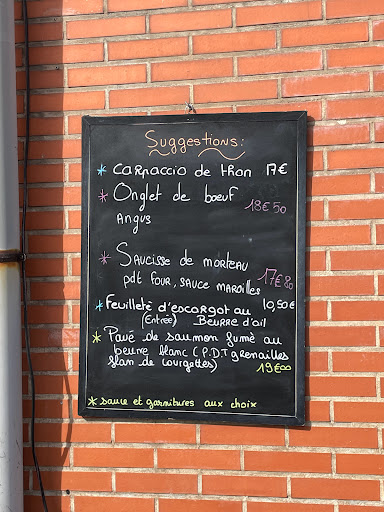 Suggestions:
* Carpaccio de thon 17€
* Onglet de bœuf
Angus 18€50
* Saucisse de morteau
pdt four, sauce maroilles 17€80
* Feuilleté d'escargot au 10,50€
(Entrée) Beurre d'ail
* Pavé de saumon fumé au
beurre blanc (P.D.T grenailles
flan de courgettes) 19€00
* sauce et garnitures aux choix